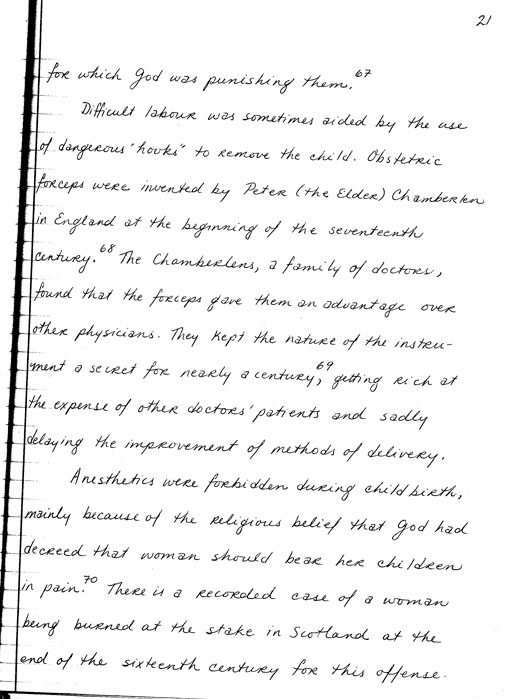 21
for which God was punishing them.67
Difficult labour was sometimes aided by the use
of dangerous "hooks" to remove the child. Obstetric
forceps were invented by Peter (the Elder) Chamberlen
in England at the beginning of the seventeenth
century.68 The Chamberlens, a family of doctors,
found that the forceps gave them an advantage over
other physicians. They kept the nature of the instru-
ment a secret for nearly a century,69 getting rich at
the expense of other doctors' patients and sadly
delaying the improvement of methods of delivery.
Anesthetics were forbidden during child birth,
mainly because of the religious belief that God had
decreed that woman should bear her children
in pain.70 There is a recorded case of a woman
being burned at the stake in Scotland at the
end of the sixteenth century for this offense.